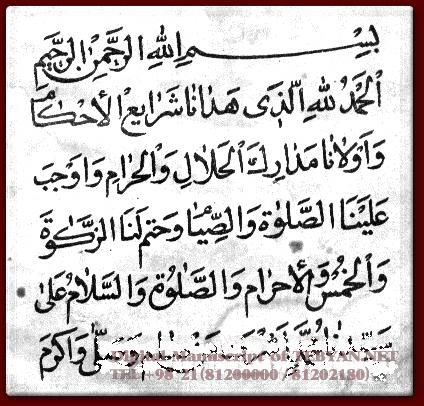 بِسْمِ اللهِ الرَّحْمٰنِ الرَّحِيمِ
اَلْحَمْدُ لِلّٰهِ الَّذِى هَدَانَا شَرَايِعَ الْأَحْكَامِ
وَاَوْلَانَا مَدَارِكَ الْحَلَالِ وَالْحَرَامِ وَاَوْجَبَ
عَلَيْنَا الصَّلٰوةَ وَالصِّيَامَ وَحَتَمَ لَنَا الزَّكٰوةَ
وَالْخُمْسَ وَالْاِحْرَامَ وَالصَّلٰوةُ وَالسَّلَامُ عَلٰى
صَلّٰى وَاَكْرَمَ
Digital Manuscript of TEBYAN.NET
TEL:+98 21(81200000 / 81202180)